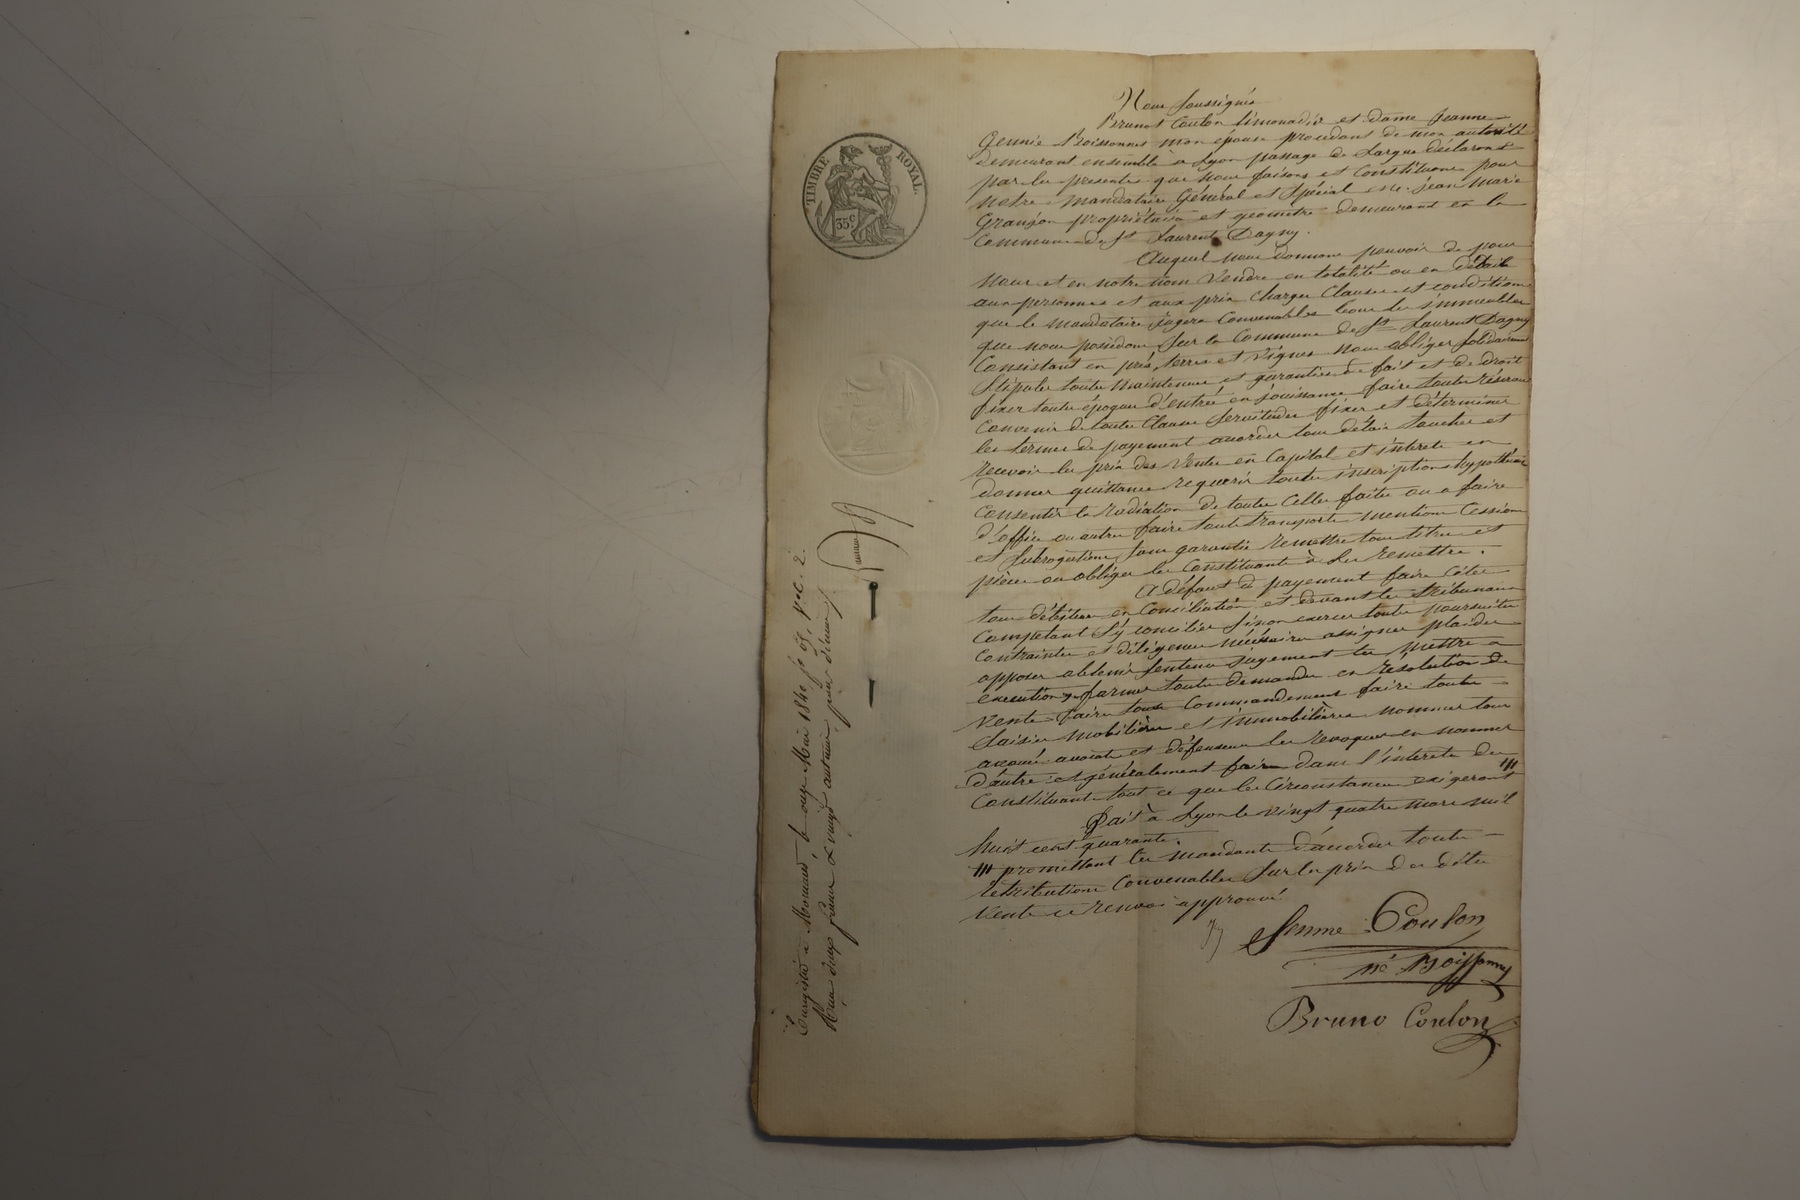 TIMBRE ROYAL.
35c
Nous soussignés
Brunot Coulon limonadier et dame Jeanne
Gennie Boissonnet mon épouse procedant de mon autorité
demeurant ensemble à Lyon passage de Largue déclarons
par les presentes que nous faisons et Constituons pour
notre Mandataire Général et Spécial Mr. Jean Marie
Granjon propriétaire et geometre demeurant en la
Commune de St Laurent Dagny.
Auquel nous donnons pouvoir de pour
Nous et en notre nom Vendre en totalité ou en détail
aux personnes et aux prix Charges Clauses et conditions
que le mandataire jugera Convenables tous les immeubles
que nous possédons sur la Commune de St Laurent Dagny
Consistant en prés, terres et Vignes nous obliger solidairement
Stipuler toutes Maintenues et garanties de fait et de droit
fixer toute époque d'entrée en jouissance faire toute réserves
Convenir de toute Clauses Servitudes fixer et déterminer
les termes de payement accorder tous délais toucher et
recevoir les prix des Ventes en Capital et intérêts en
donner quittance requerir toutes inscriptions hypothécaires
Consentir la radiation de toutes Celles faites ou a faire
d'office ou autres faire tout transports Mentions Cessions
et Subrogations sans garantie remettre tous titres et
pièces ou obliger les Constituants à les remettre.
A défaut de payement faire Citer
tous débiteurs en Conciliation et devant les tribunaux
Compétant S'y concilier Sinon exercer toutes poursuites
Contraintes et diligences nécéssaires assigner plaider
opposer obtenir Sentences jugements les Mettre a
execution, former toutes demandes en résolution de
Vente faire tous Commandements faire toutes
Saisies Mobilières et immobilières nommer tous
avoués avocats et défenseurs les revoquer en nommer
d'autres et généralement faire dans l'intérêts des
Constituants tout ce que les Circonstances exigeront ///
Fait à Lyon le vingt quatre mars mil
huit cent quarante.
/// promettant les mandants d'accorder toute
retributions Convenables Sur les prix des dites
Vente ce renvoi approuvé
femme Coulon
né Boissonnet
Bruno Coulon
Enregistré à Mornant, le onze Mai 1840 fo 97, vo c. 2.
Reçu deux francs & vingt centimes pour décime.